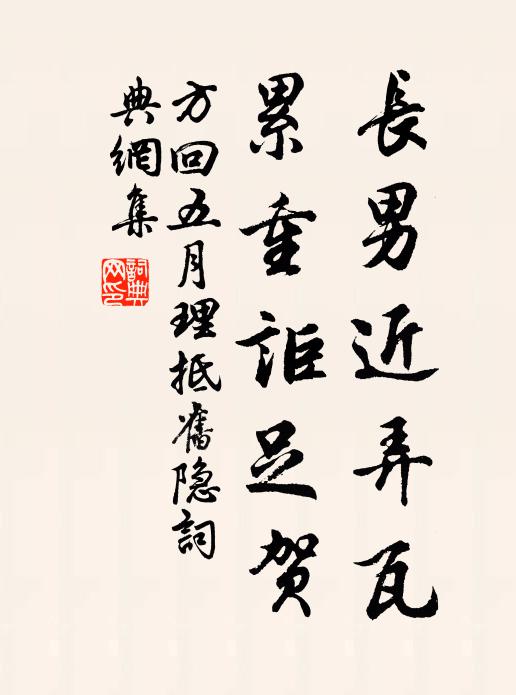 長男近弄瓦
累重詎足贺
方回五月理抵舊隐詞
典網集
詞典
网印